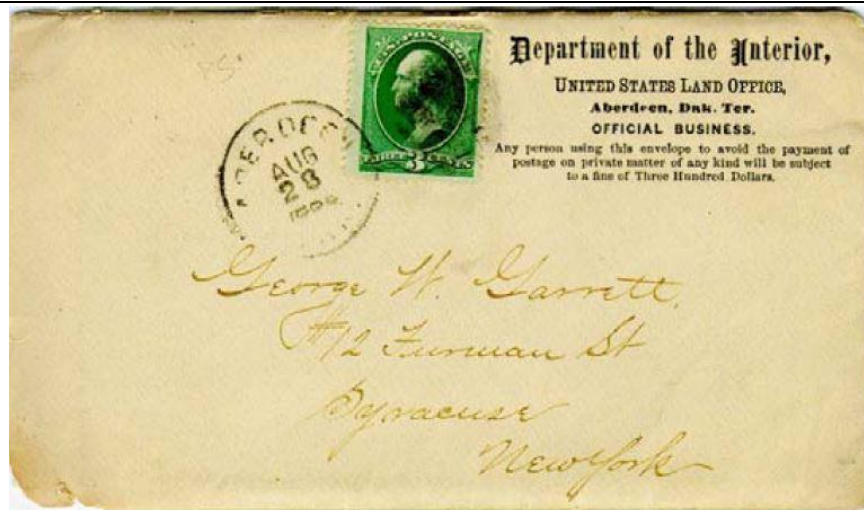 U.S. POSTAGE
THREE 3 CENTS
Department of the Interior,
UNITED STATES LAND OFFICE,
Aberdeen, Dak. Ter.
OFFICIAL BUSINESS.
Any person using this envelope to avoid the payment of
postage on private matter of any kind will be subject
to a fine of Three Hundred Dollars.
ABERDEEN
AUG
28
George W. Garrett,
#12 Furman St
Syracuse
New York